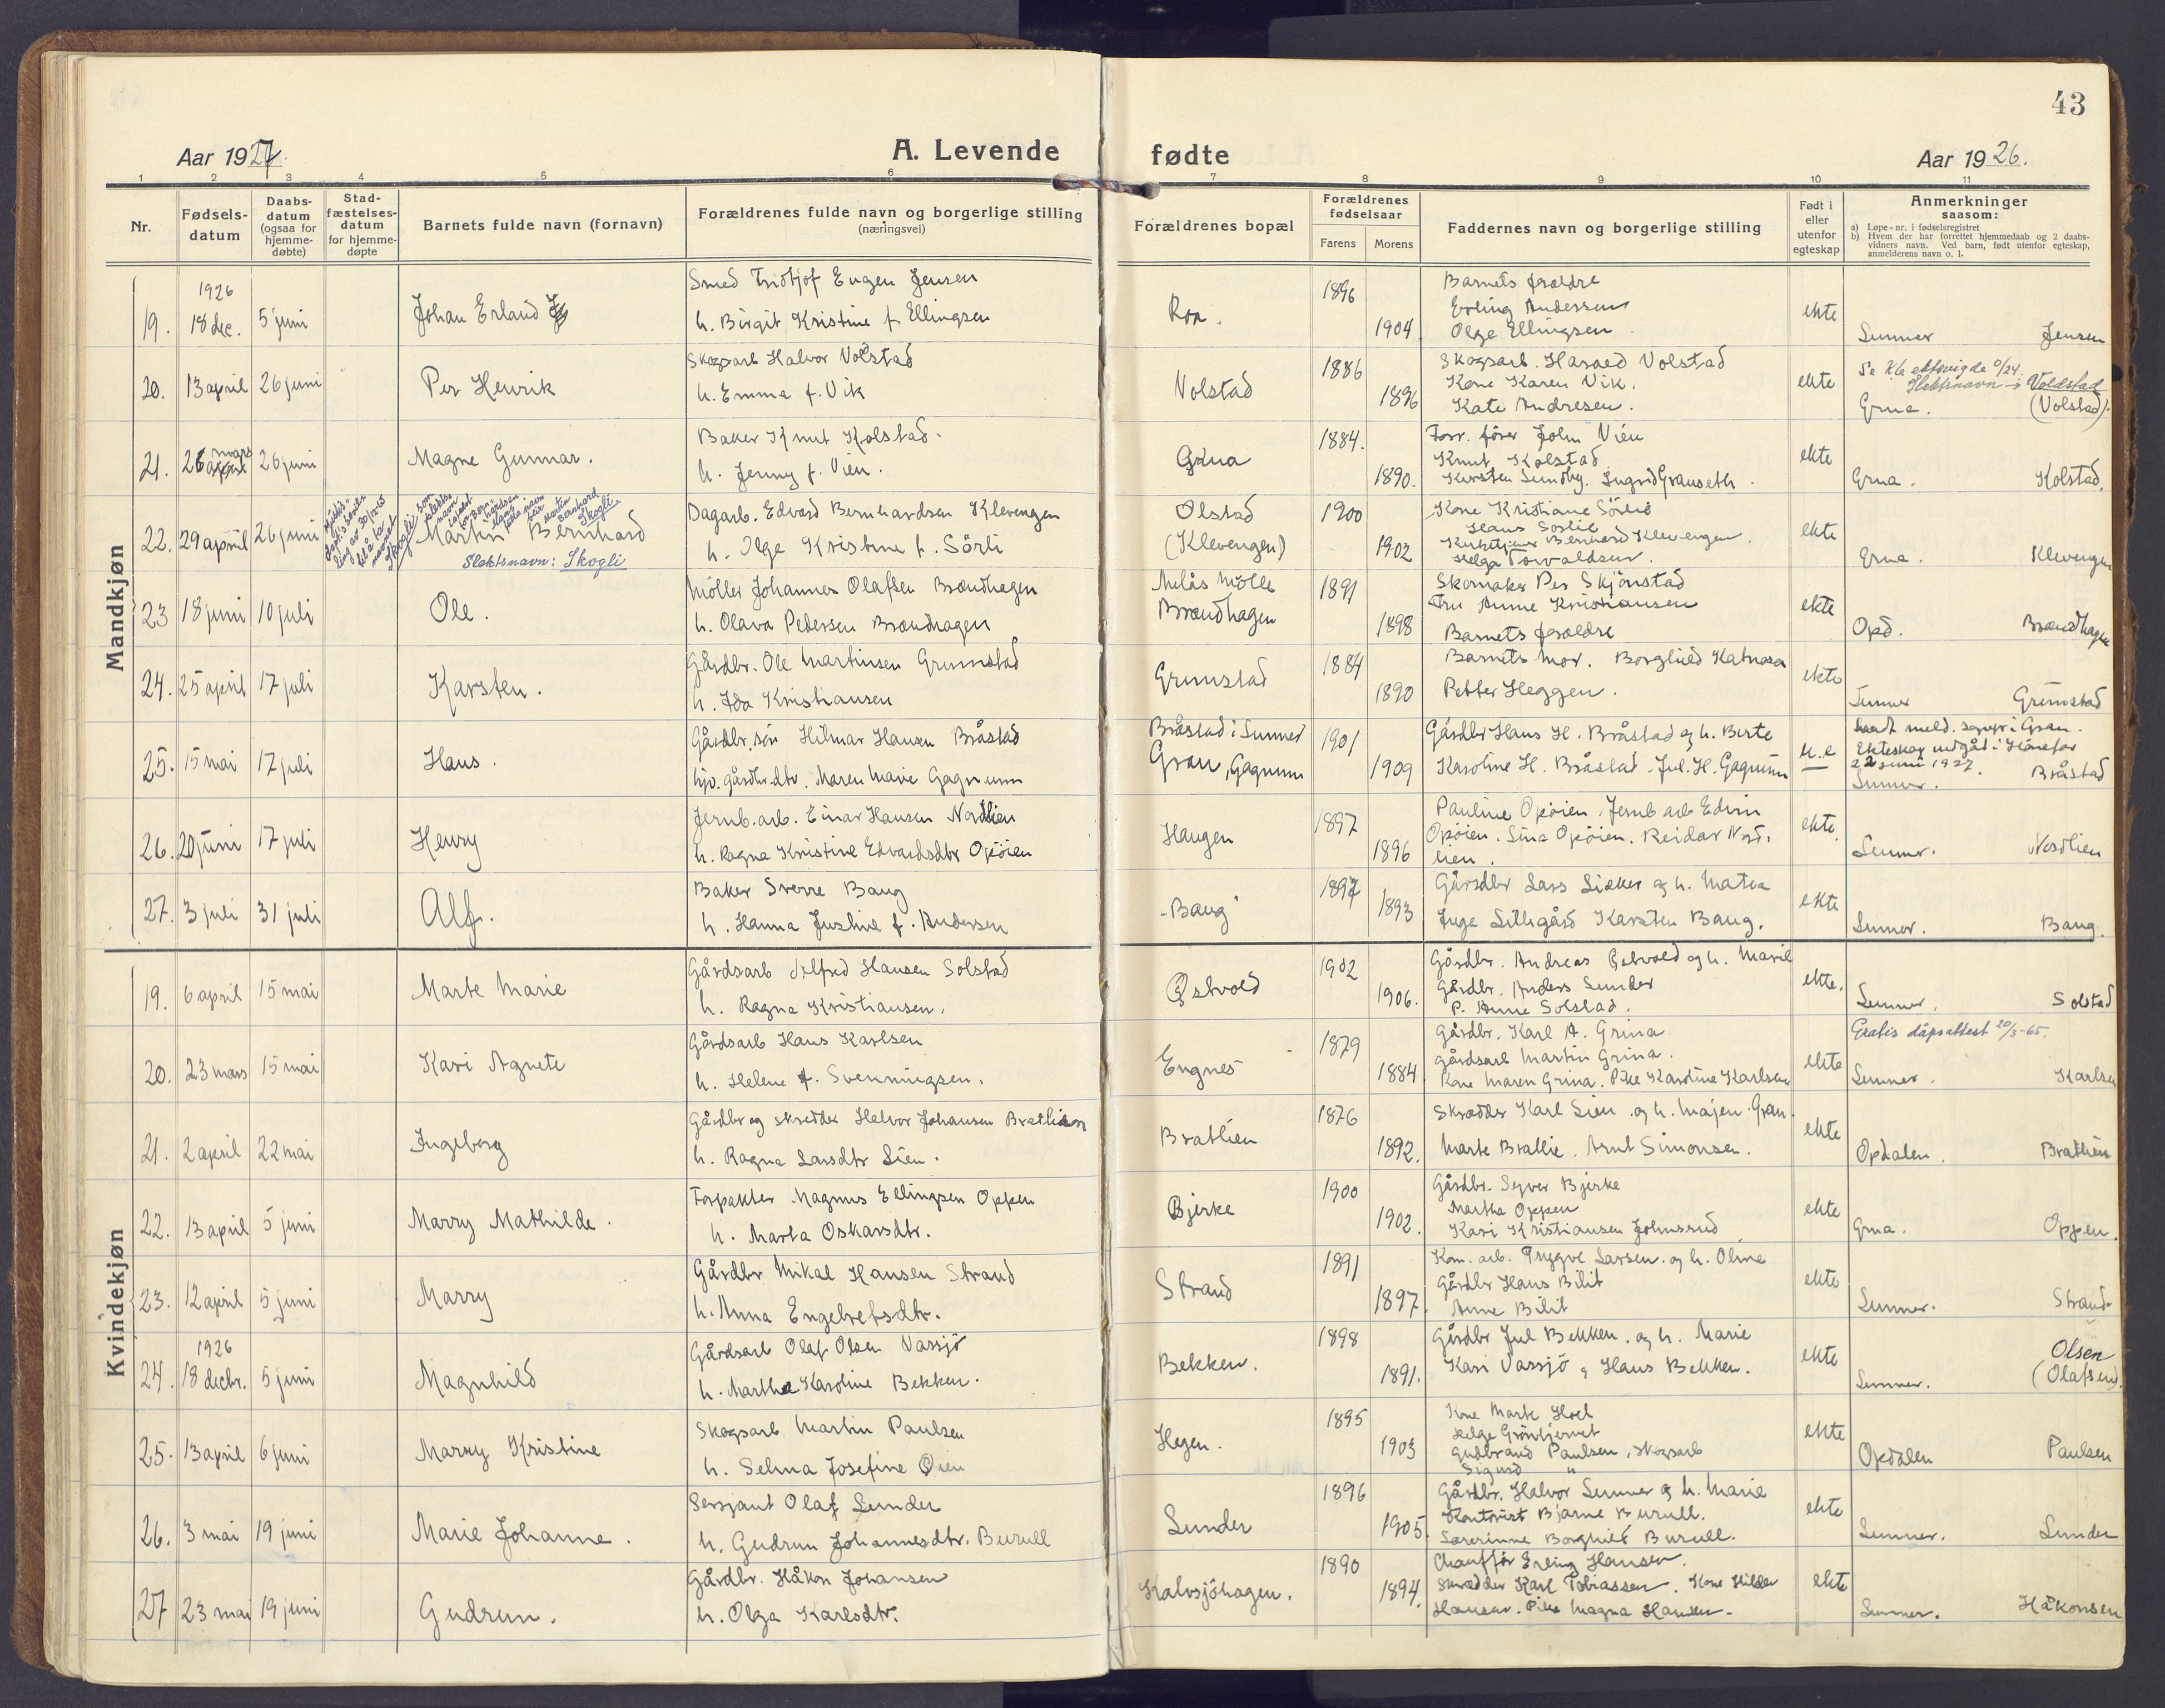 43
Aar 1927.
A. Levende
fødte
Aar 1926.
1 2 3 4 5 6 7 8 9 10 11
Nr.
Fødsels-
datum
Daabs-
datum
(ogsaa for
hjemme-
døbte)
Stad-
fæstelses-
datum
for hjemme-
døpte
Barnets fulde navn (fornavn)
Forældrenes fulde navn og borgerlige stilling
(næringsvei)
Forældrenes bopæl
Forældrenes
fødselsaar
Farens
Morens
Faddernes navn og borgerlige stilling
Født i
eller
utenfor
egteskap
Anmerkninger
saasom:
a) Løpe-nr. i fødselsregistret
b) Hvem der har forrettet hjemmedaab og 2 daabs-
vidners navn. Ved barn, født utenfor egteskap,
anmelderens navn o. l.
Mandkjøn
1926
19. 18 dec. 5 juni
Johan Erland
Smed Fridtjof Eugen Jensen
h. Birgit Kristine f. Ellingsen
Roa.
1896
1904
Barnets foreldre
Erling Anderssen
Olga Ellingsen
ekte
Lunner Jensen
20. 13 april 26 juni
Per Henrik
Skogsarb Halvor Volstad
h. Emma f. Vik
Volstad
1886
1896
Skogsarb. Harald Volstad
Kone Karen Vik.
Kate Andresen.
ekte
Slektsnavn: Voldstad
Grua. (Volstad).
21. 26 mars 26 juni
Magne Gunnar.
Baker Knut Kolstad.
h. Jenny f. Vien.
Grua
1884.
1890.
Forr. fører John Vien
Knut Kolstad
Kirsten Sundby. Ingrid Granseth.
ekte
Grua. Kolstad.
22. 29 april 26 juni
Martin Bernhard
Slektsnavn: Skogli
Dagarb. Edvard Bernhardsen Klevengen
h. Olga Kristine f. Sörli
Olstad
(Klevengen)
1900
1902
Kone Kristiane Sörlie
Hans Sörlie
Bernhard Klevengen.
Helga Torvaldsen.
ekte
Grua. Klevengen
23 18 juni 10 juli
Ole.
Möller Johannes Olafsen Brændhagen
h. Olava Pedersen Brændhagen
Melås Mölle
Brændhagen
1891
1898
Skomaker Per Skjönstad
Fru Anne Kristiansen
Barnets foreldre
ekte
Opd. Brændhagen
24. 25 april 17 juli
Karsten.
Gårdbr. Ole Martinsen Grimstad
h. Ida Kristiansen
Grimstad
1884
1890
Barnets mor. Borghild Katnosa
Petter Heggen.
ekte
Lunner Grimstad
25. 15 mai 17 juli
Hans.
Gårdbr. sön Hilmar Hansen Bråstad
hjv. gårdbr. dtr. Maren Marie Gagnum
Bråstad i Lunner
Gran, Gagnum
1901
1909
Gårdbr Hans H. Bråstad og h. Berte
Karoline H. Bråstad. Jul. H. Gagnum
u.e
Ekteskap indgåt i Hönefos
22 juni 1927.
Lunner. Bråstad
26. 20 juni 17 juli
Henry
Jernb. arb. Einar Hansen Nordlien
h. Ragna Kristine Edvardsdtr Opöien
Haugen
1897
1896
Pauline Opöien, Jernb arb Edvin
Opöien. Lina Opöien. Reidar Nord-
lien.
ekte.
Lunner. Nordlien
27. 3 juli 31 juli
Alf.
Baker Sverre Baug
h. Hanna Justine f. Andersen
Baug
1897
1893
Gårdbr Lars Sieker og h. Matea
Inga Lillegård Karsten Baug.
ekte
Lunner. Baug.
Kvindekjøn
19. 6 april 15 mai
Marte Marie
Gårdsarb Alfred Hansen Solstad
h. Ragna Kristiansen.
Östvold
1902
1906.
Gårdbr. Andreas Östvold og h. Marie
Gårdbr. Anders Lunder
P. Anne Solstad.
ekte.
Lunner. Solstad
20. 23 mars 15 mai
Kari Agnete
Gårdsarb Hans Karlsen
h. Helene f. Svenningsen.
Engnes
1879
1884
Gårdbr. Karl A. Grina
Gårdsarb Martin Grina.
Kone Maren Grina. Pike Karoline Karlsen
ekte
Gratis dåpsattest 20/3-65.
Lunner. Karlsen
21. 2 april 22 mai
Ingeborg
Gårdbr og skredder Halvor Johansen Bratlien
h. Ragna Larsdtr Lien.
Bratlien
1876
1892.
Skrædder Karl Lien og h. Majen. Gran.
Marte Bratlie. Arnt Simonsen.
ekte
Opdalen. Bratlien
22. 13 april 5 juni
Marry Mathilde.
Forpakter Magnus Ellingsen Oppen
h. Marta Oskarsdtr.
Bjerke
1900
1902.
Gårdbr. Syver Bjerke
Martha Oppen
Kari Kristiansen Johnsrud
ekte
Grua. Oppen.
23. 12 april 5 juni
Marry
Gårdbr Mikal Hansen Strand
h. Anna Engebretsdtr.
Strand
1891
1897.
Kom. arb. Trygve Larsen. og h. Oline
Gårdbr Hans Bilit
Anne Bilit
ekte
Lunner. Strand.
1926
24. 18 decbr. 5 juni
Magnhild
Gårdsarb Olaf Olsen Vassjö
h. Martha Karoline Bekken.
Bekken.
1898
1891.
Gårdbr Jul Bekken. og h. Marie
Kari Vassjö, Hans Bekken.
ekte
Olsen
Lunner. (Olafsen).
25. 13 april 6 juni
Marry Kristine
Skogsarb Martin Paulsen
h. Selma Josefine Öien
Hegen.
1895
1903
Kone Marte Hoel
Helge Grönhjernet
Gudbrand Paulsen, skogsarb
Sigurd "
ekte
Opdalen Paulsen
26. 3 mai 19 juni
Marie Johanne.
Sersjant Olaf Lunder
h. Gudrun Johannesdtr. Burull
Lunder
1896
1905.
Gårdbr. Halvor Lunner og h. Maria
Kontorist Bjarne Burull.
Lærerinne Borghild Burull.
ekte
Lunner. Lunder
27 23 mai 19 juni
Gudrun.
Gårdbr. Håkon Johansen
h. Olga Karlsdtr.
Kalvsjöhagen.
1890
1894.
Chaufför Erling Hansen.
Skredder Karl Tobiassen. Kone Hilda
Hansen. Pike Magna Hansen.
ekte
Lunner. Håkonsen